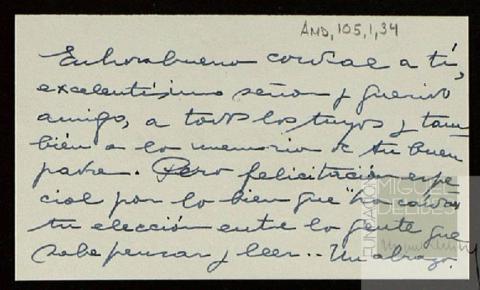 AMD, 105, 1, 34
Enhorabuena cordial a tí,
excelentísimo señor y querido
amigo, a todos los tuyos y tam
bién a la memoria de tu buen
padre. Pero felicitación espe
cial por lo bien que "ha caído"
tu elección entre la gente que
sabe pensar y leer.. Un abrazo.
FUNDACIÓN
MIGUEL
DELIBES